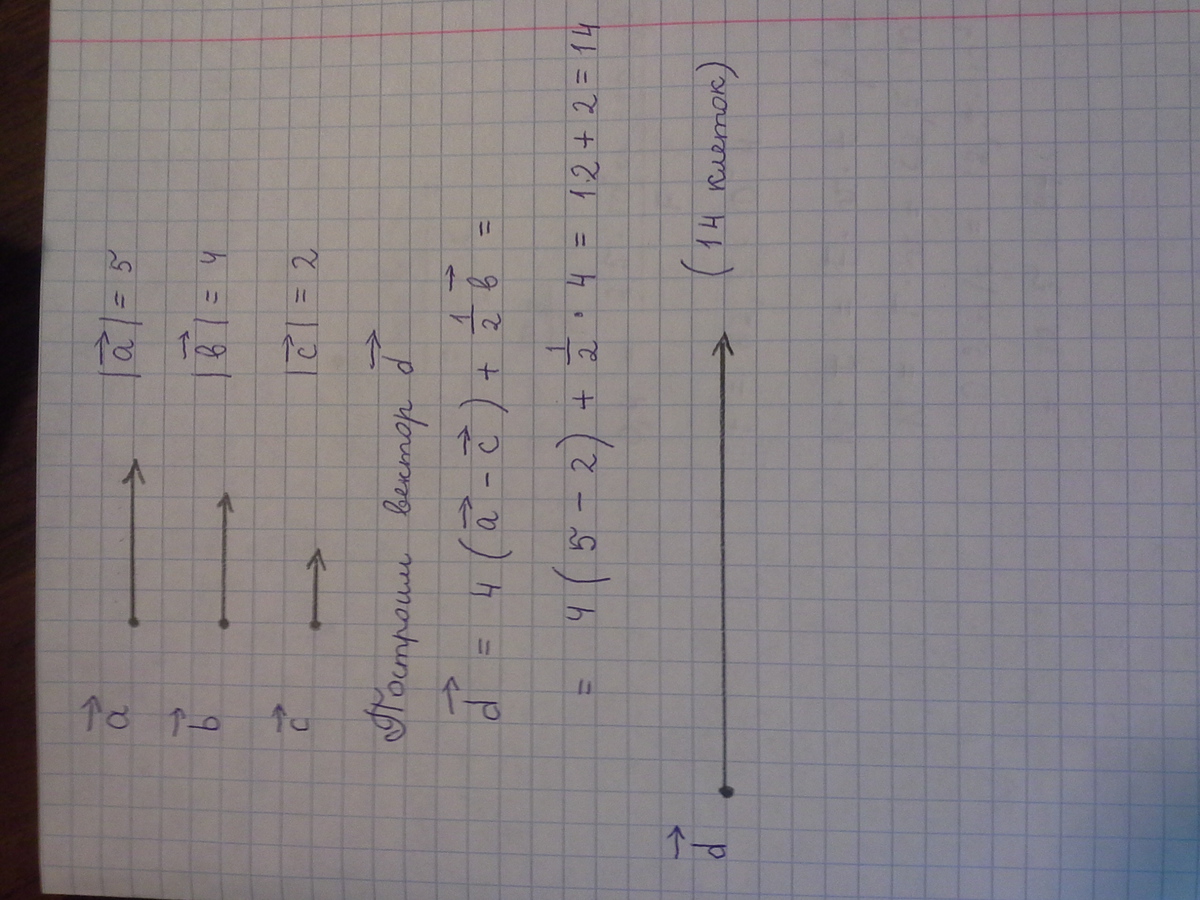 a⃗ |a⃗| = 5
b⃗ |в⃗| = 4
c⃗ |c⃗| = 2
Построим вектор d⃗
d⃗ = 4(a⃗ - c⃗) + 1/2 в⃗ =
= 4(5 - 2) + 1/2 · 4 = 12 + 2 = 14
d⃗ (14 клеток)